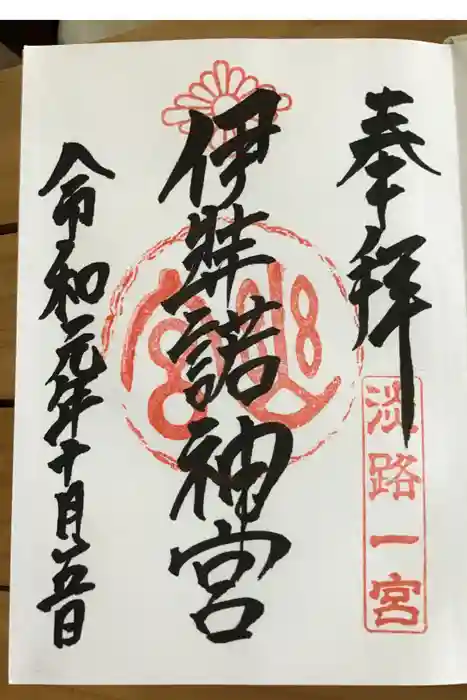 奉拝
淡路一宮
伊弉諾神宮
令和元年十月五日